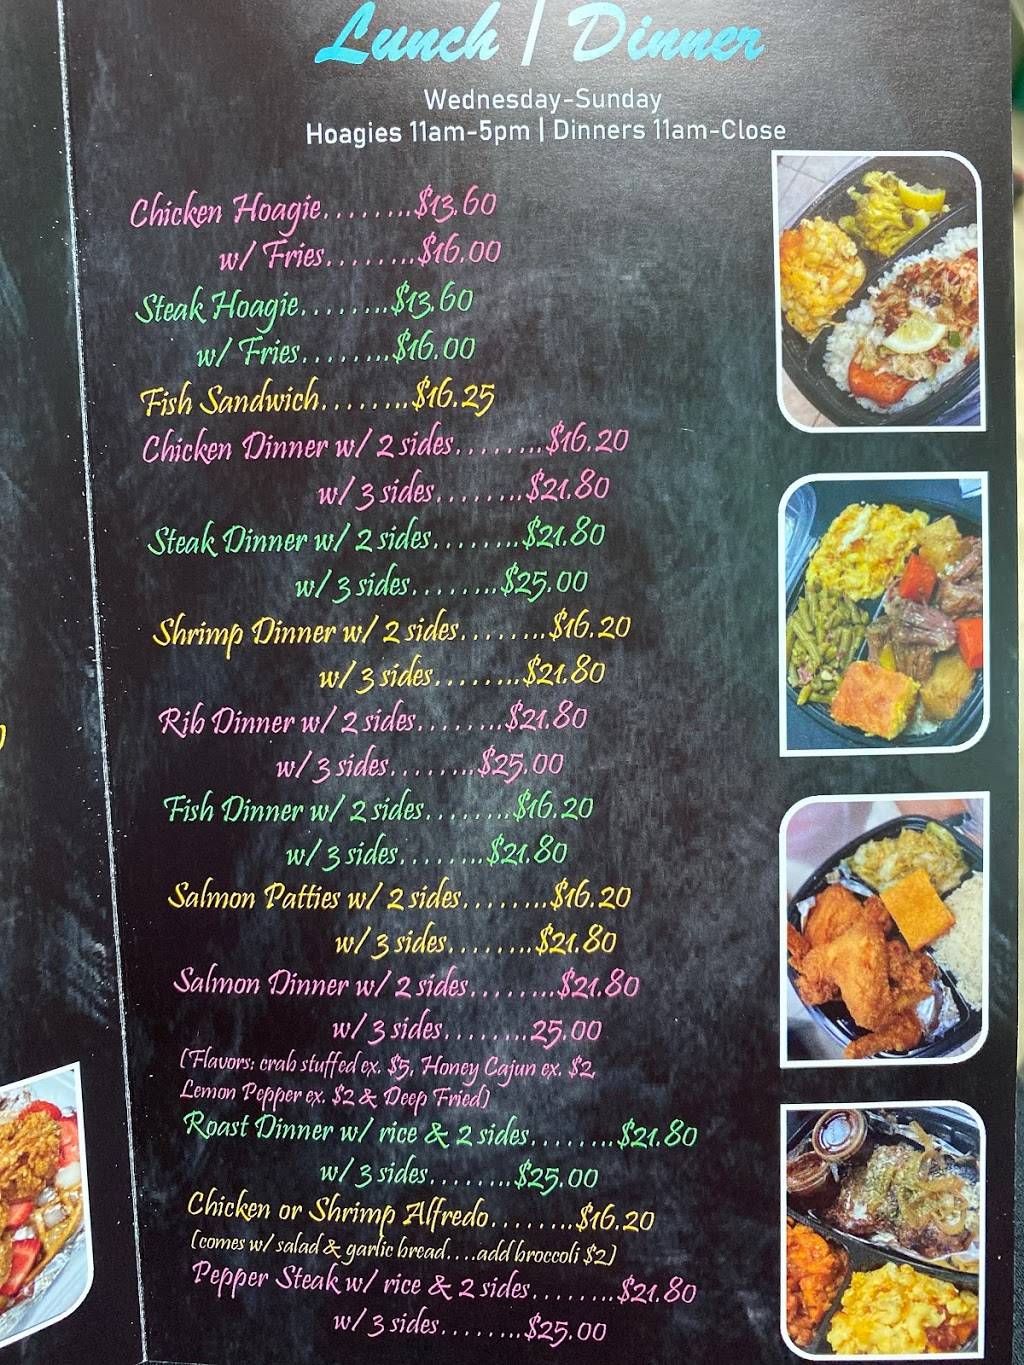 Lunch | Dinner
Wednesday-Sunday
Hoagies 11am-5pm | Dinners 11am-Close
Chicken Hoagie........$13.60
w/ Fries........$16.00
Steak Hoagie........$13.60
w/ Fries........$16.00
Fish Sandwich........$16.25
Chicken Dinner w/ 2 sides........$16.20
w/ 3 sides........$21.80
Steak Dinner w/ 2 sides........$21.80
w/ 3 sides........$25.00
Shrimp Dinner w/ 2 sides........$16.20
w/ 3 sides........$21.80
Rib Dinner w/ 2 sides........$21.80
w/ 3 sides........$25.00
Fish Dinner w/ 2 sides........$16.20
w/ 3 sides........$21.80
Salmon Patties w/ 2 sides........$16.20
w/ 3 sides........$21.80
Salmon Dinner w/ 2 sides........$21.80
w/ 3 sides........25.00
(Flavors: crab stuffed ex. $5, Honey Cajun ex. $2,
Lemon Pepper ex. $2 & Deep Fried)
Roast Dinner w/ rice & 2 sides........$21.80
w/ 3 sides........$25.00
Chicken or Shrimp Alfredo........$16.20
(comes w/ salad & garlic bread....add broccoli $2)
Pepper Steak w/ rice & 2 sides........$21.80
w/ 3 sides........$25.00